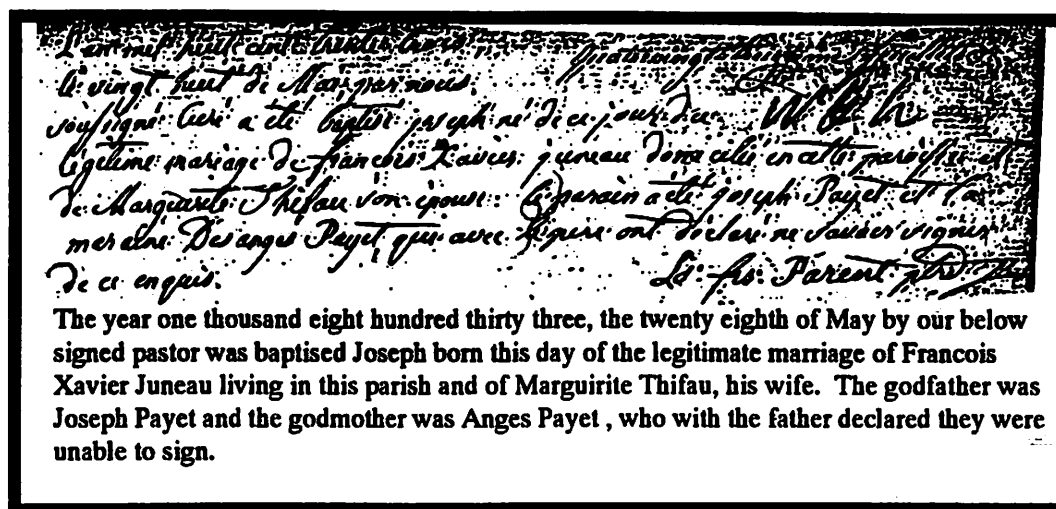 L'an mil huit cent trente trois
le vingt huit de Mai par nous
soussigné Curé a été baptisé joseph né de ce jour du
legitime mariage de françois Xavier juneau domicilié en cette paroisse et
de Marguerite Thifau son épouse: le parain a été joseph Payet et la
maraine Desanges Payet qui avec le pere ont déclaré ne savoir signer
de ce enquis.
Ls. frs. Parent ptre
The year one thousand eight hundred thirty three, the twenty eighth of May by our below
signed pastor was baptised Joseph born this day of the legitimate marriage of Francois
Xavier Juneau living in this parish and of Marguirite Thifau, his wife. The godfather was
Joseph Payet and the godmother was Anges Payet , who with the father declared they were
unable to sign.